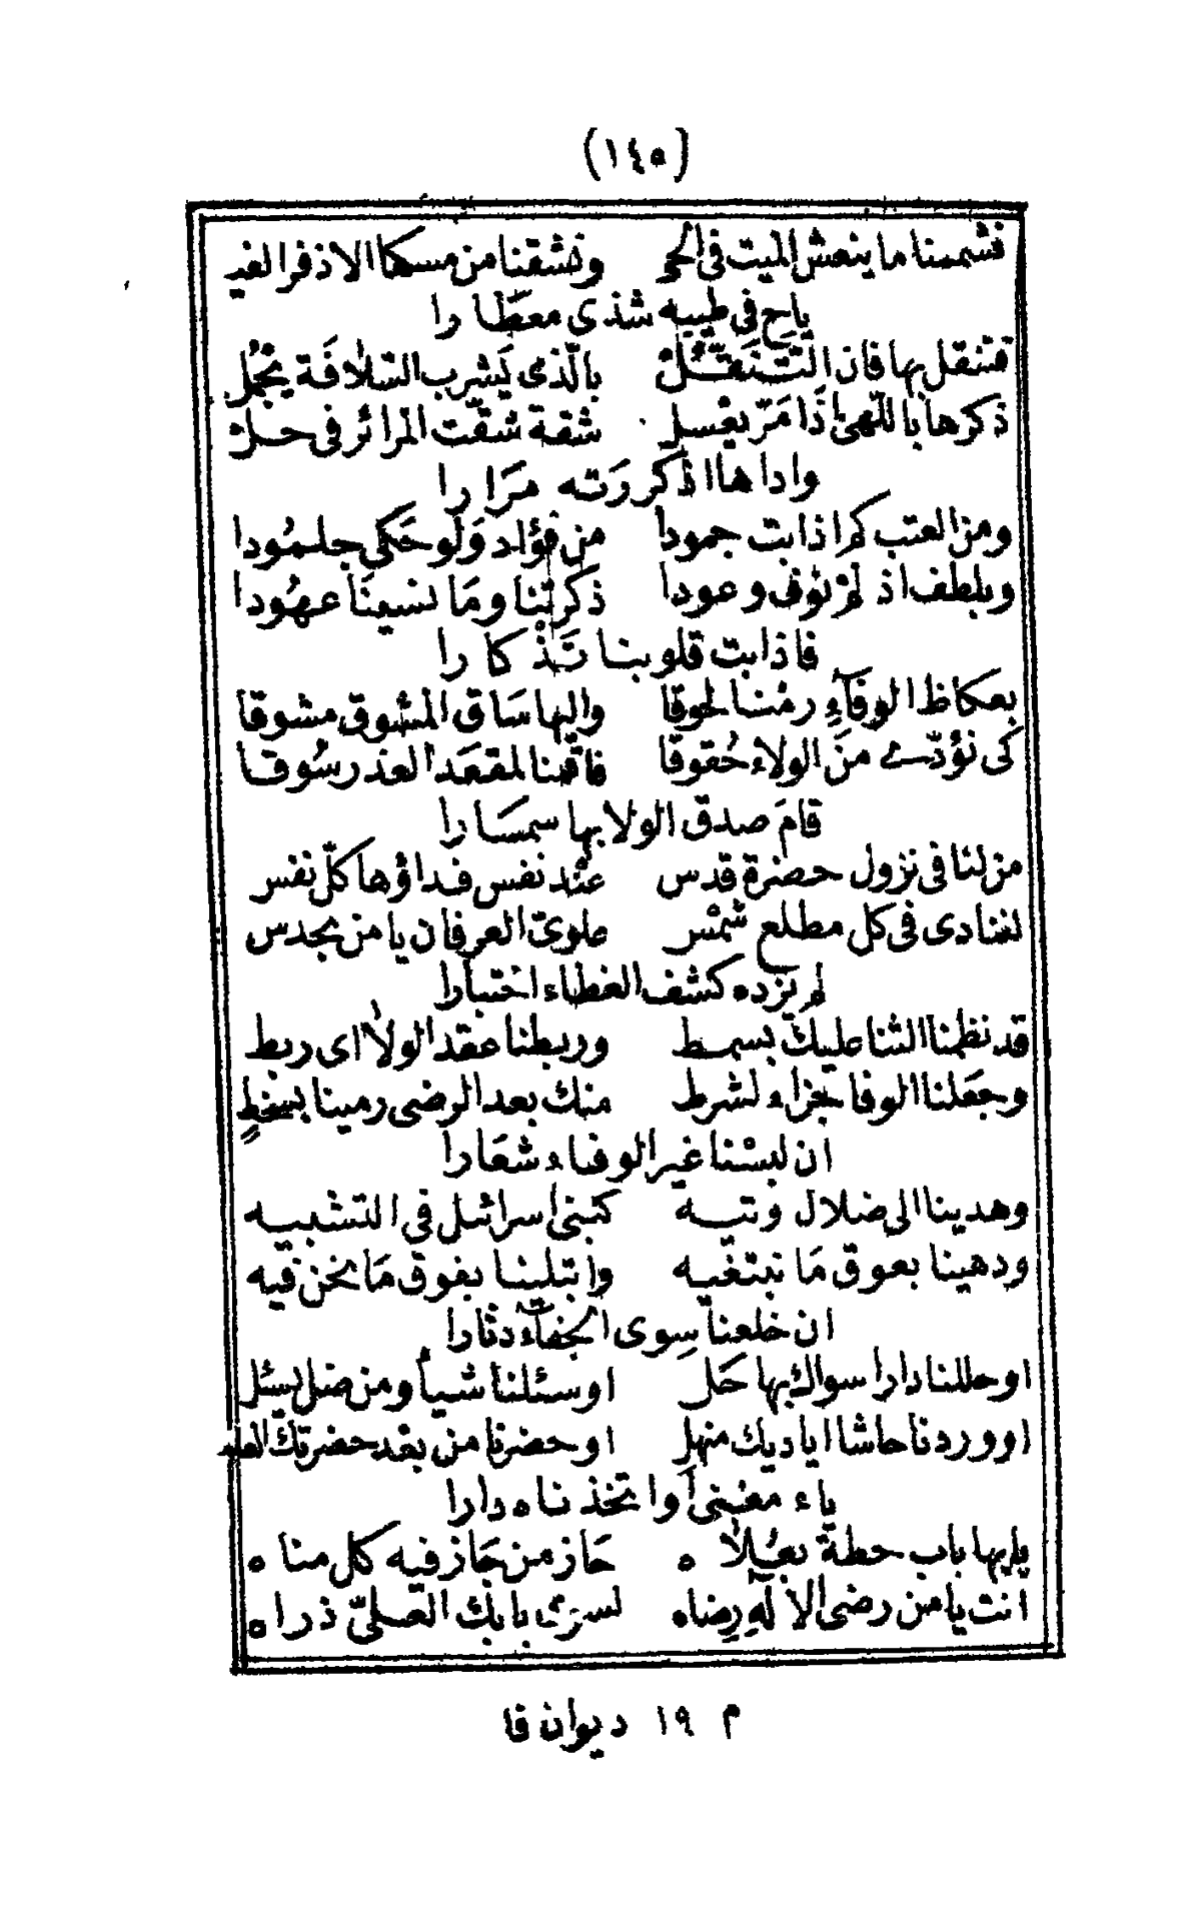 (١٤٥)
فشممنا ما ينعش الميت فى الحى ونشقنا من مسكها الاذفر الفيـ
ياح فى طيبه شذى معطارا
فتنقل بها فان التَنَقُّلْ بالّذى يَشرب السّلافَة يَجْمُل
ذكرها باللّهىٰ اذَا مَرّ يعْسل شقة شقّت المرائر فى حل
واداها اذكرَرَته مَرَارا
ومن العتب كم اذابت جمودا من فؤاد وَلَو حَكى جلمُودا
وبلطف اذ لمْ نوفى وعودا ذكرتنا ومَا نسينَا عهُودا
فاذابت قلوبنا تَذْكارا
بعكاظ الوفآءِ رمْنا لحوقا واليها سَاق المشوق مشوقا
كى نؤدّى منَ الولاء حُقوقا فاقمنا لمقعَد العذر سُوقا
قامَ صدق الولا بها سمسَارا
من لنا فى نزول حضرة قدس عنْد نفس فداؤها كلّ نفس
لننادى فى كل مطلع شمْس علوىّ العرفان يا من بحدس
لم تزده كشف الغطاء اختبارا
قد نظمنا الثنا عليك بسمط وربطنا عقد الولا اى ربط
وجعَلنا الوفا جزاء لشرط منك بعد الرضى رمينا بسخطٍ
ان لبسْنا غير الوفاء شعَارا
وهدينا الى ضلال وتيه كبنى اسرائيل فى التشبيه
ودهينا بعوق مَا نبتغيه وابتلينا بفوق مَا نحن فيه
ان خلعنا سِوى الجفآء دثارا
اوحللنا دارا سواك بها حَل اوسئلنا شيأ ومن ضل يسئل
اووردنا حاشا اياديك منهل اوحضرنا من بعْد حضرتك العلـ
ياء مغنىً اواتخذناه دارا
يا بها باب حطة بعُلاٰه حَاز من جَاز فيه كل مناه
انت يا من رضى الالٰه رِضاه لسنرى بابك العلىّ ذراه
م ١٩ ديوان فا